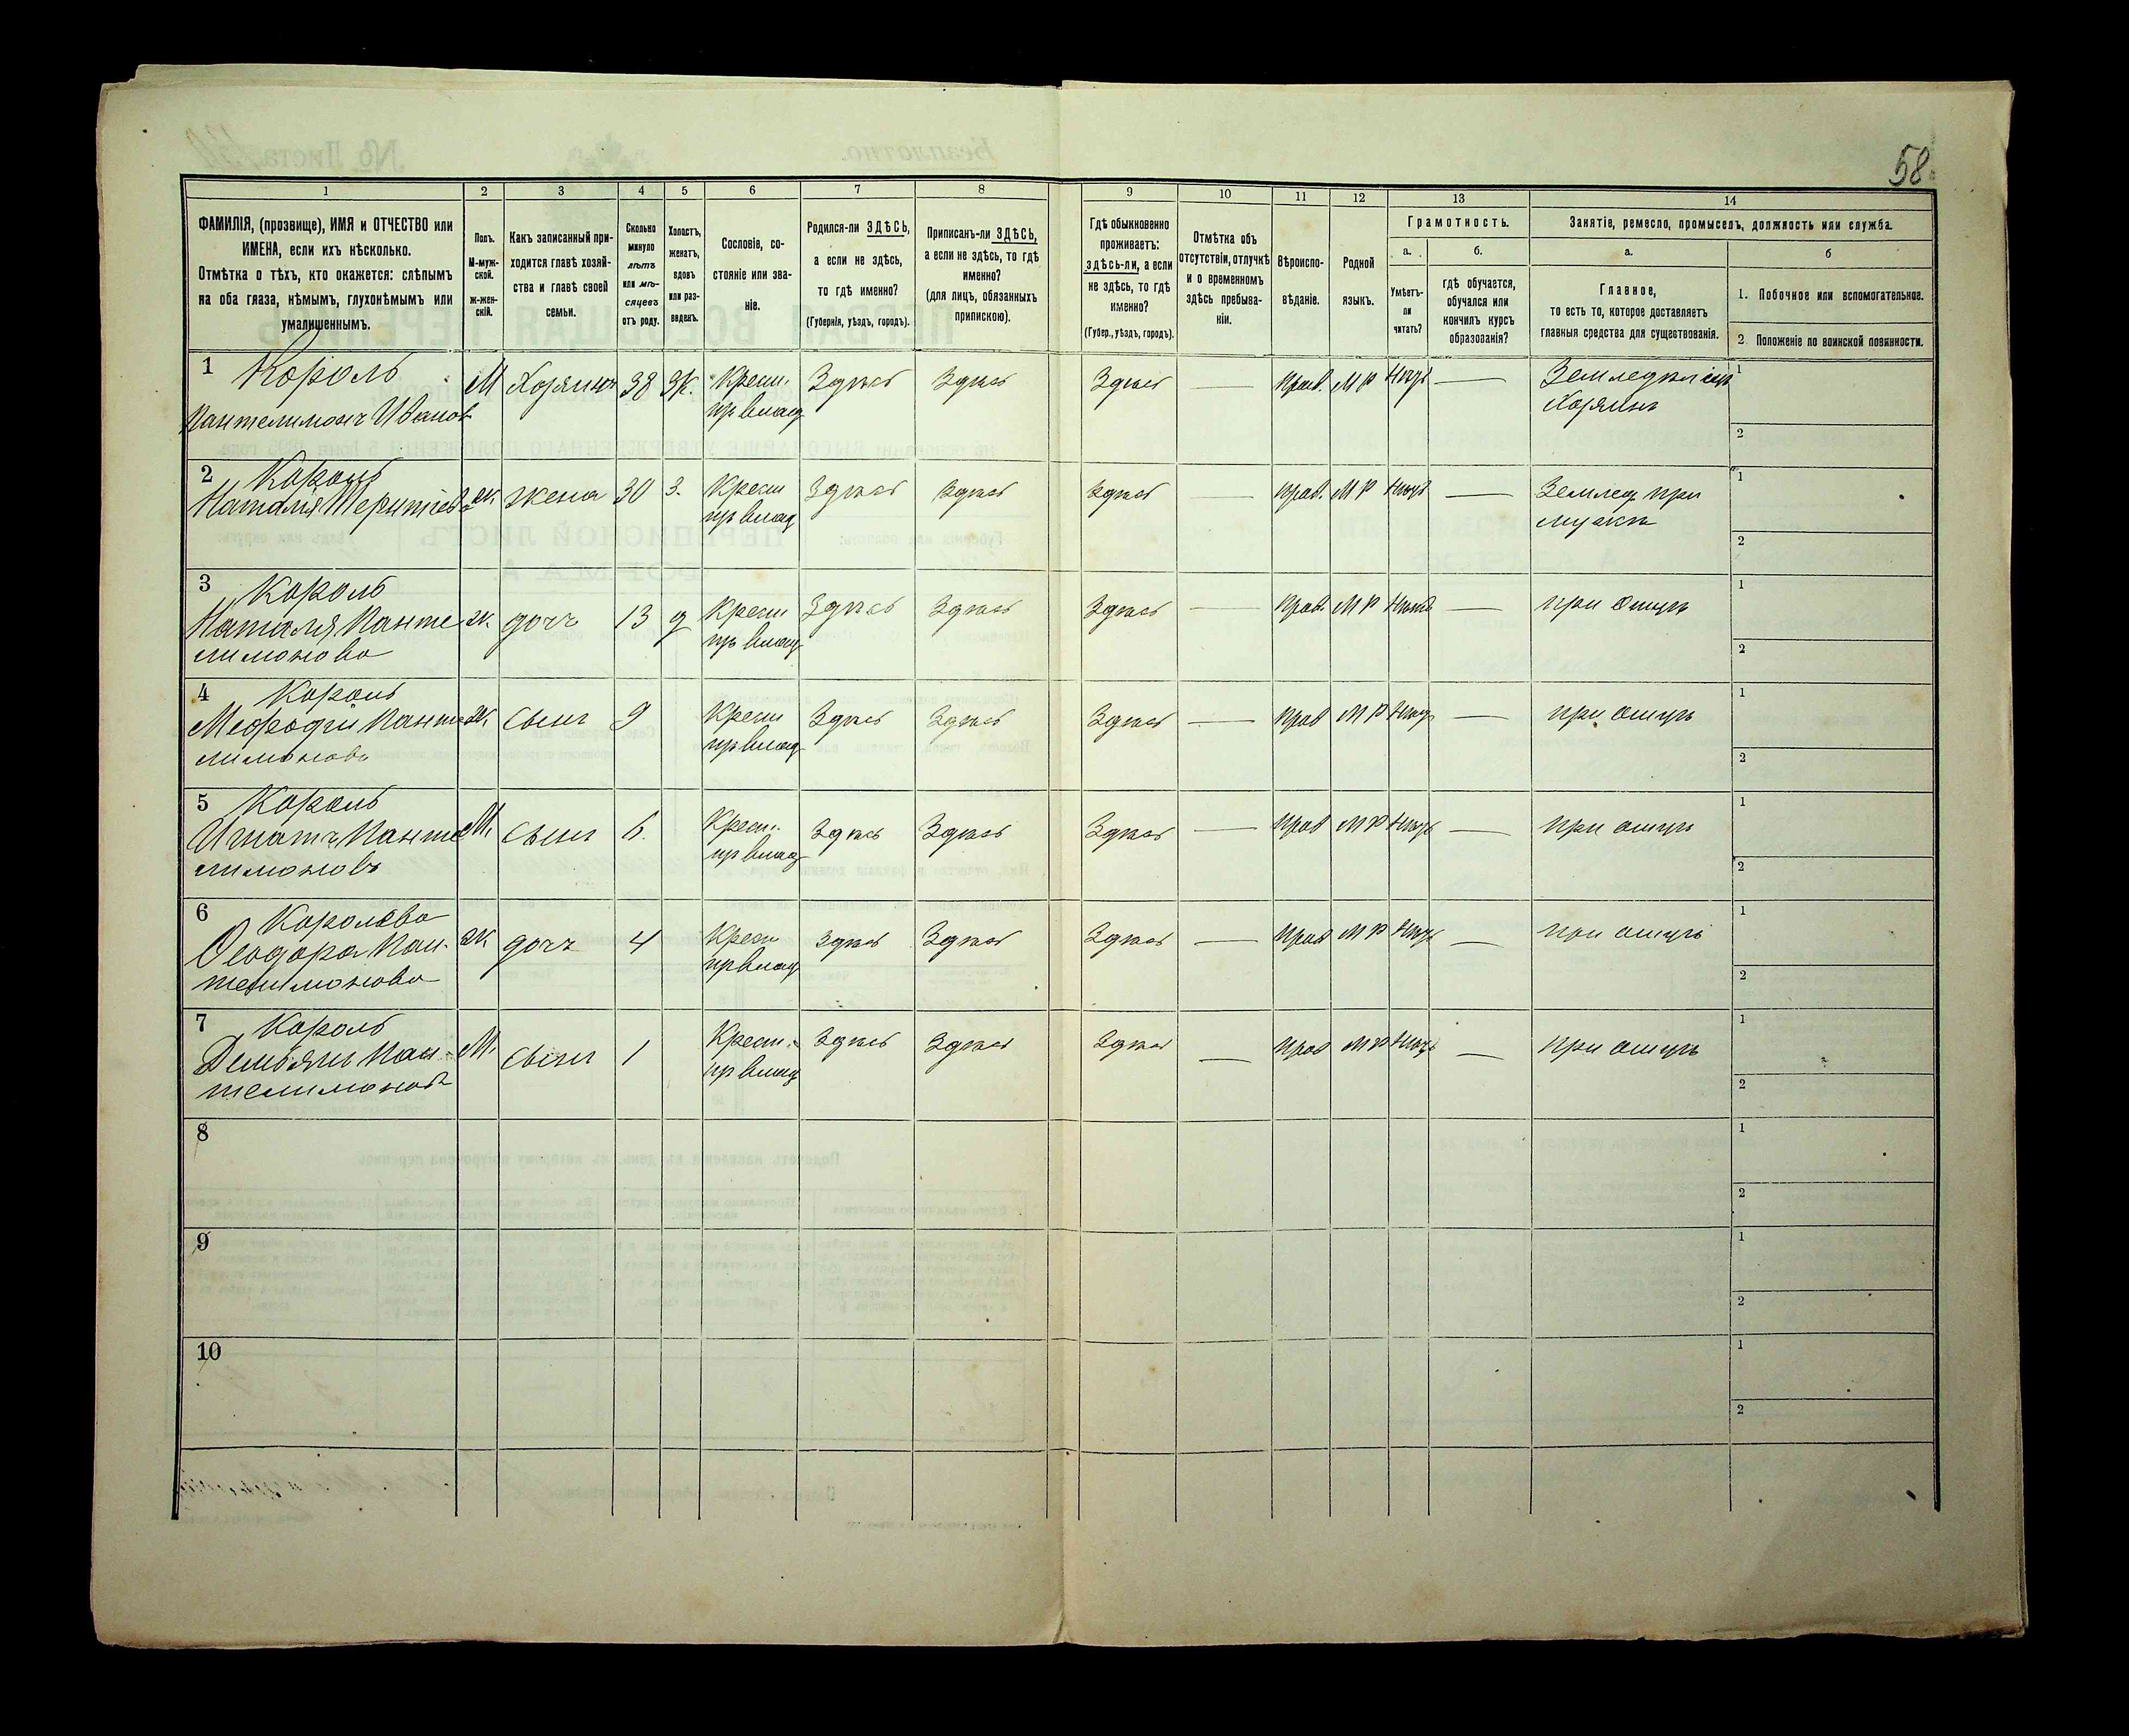 58
1 2 3 4 5 6 7 8 9 10 11 12 13 14
ФАМИЛІЯ, (прозвище), ИМЯ и ОТЧЕСТВО или
ИМЕНА, если ихъ нѣсколько.
Отмѣтка о тѣхъ, кто окажется: слѣпымъ
на оба глаза, нѣмымъ, глухонѣмымъ или
умалишеннымъ.
Полъ.
М-муж-
ской.
ж-жен-
скій.
Какъ записанный при-
ходится главѣ хозяй-
ства и главѣ своей
семьи.
Сколько
минуло
лѣтъ
или мѣ-
сяцевъ
отъ роду.
Холостъ,
женатъ,
вдовъ
или раз-
веденъ.
Сословіе, со-
стояніе или зва-
ніе.
Родился-ли ЗДѢСЬ,
а если не здѣсь,
то гдѣ именно?
(Губернія, уѣздъ, городъ).
Приписанъ-ли ЗДѢСЬ,
а если не здѣсь, то гдѣ
именно?
(для лицъ, обязанныхъ
припискою).
Гдѣ обыкновенно
проживаетъ:
здѣсь-ли, а если
не здѣсь, то гдѣ
именно?
(Губер., уѣздъ, городъ).
Отмѣтка объ
отсутствіи, отлучкѣ
и о временномъ
здѣсь пребыва-
ніи.
Вѣроиспо-
вѣданіе.
Родной
языкъ.
Грамотность.
а.
Умѣетъ-
ли
читать?
б.
гдѣ обучается,
обучался или
кончилъ курсъ
образованія?
Занятіе, ремесло, промыселъ, должность или служба.
а.
Главное,
то есть то, которое доставляетъ
главныя средства для существованія.
б
1. Побочное или вспомогательное.
2. Положеніе по воинской повинности.
1 Король М Хозяинъ 38 Ж. Крест. Здѣсь Здѣсь Здѣсь — Прав. МР Нѣтъ — Земледѣлецъ 1
Пантелимонъ Ивановъ пр влад Хозяинъ 2
2 Король ж. жена 30 з. Крест Здѣсь Здѣсь Здѣсь — Прав. МР Нѣтъ — Землед. при 1
Наталія пр влад мужѣ 2
3 Король ж. дочь 13 д Крест Здѣсь Здѣсь Здѣсь — Прав. МР Нѣтъ — при отцѣ 1
Наталия Панте пр влад
лимонова 2
4 Король сынъ 9 Крест Здѣсь Здѣсь Здѣсь — Прав МР Нѣтъ — при отцѣ 1
Мефодій Панте пр влад
лимоновъ 2
5 Король М. сынъ 6. Крест. Здѣсь Здѣсь Здѣсь — Прав МР Нѣтъ — при отцѣ 1
Игнатъ Панте пр влад
лимоновъ 2
6 Королева ж. дочь 4 Крест Здѣсь Здѣсь Здѣсь — Прав МР Нѣтъ — при отцѣ 1
Ѳеодора Пан- пр влад
телимонова 2
7 Король М. сынъ 1 Крест. Здѣсь Здѣсь Здѣсь — Прав МР Нѣтъ — при отцѣ 1
Демьянъ Пан- пр влад
телимоновъ 2
8 1
2
9 1
2
10 1
2